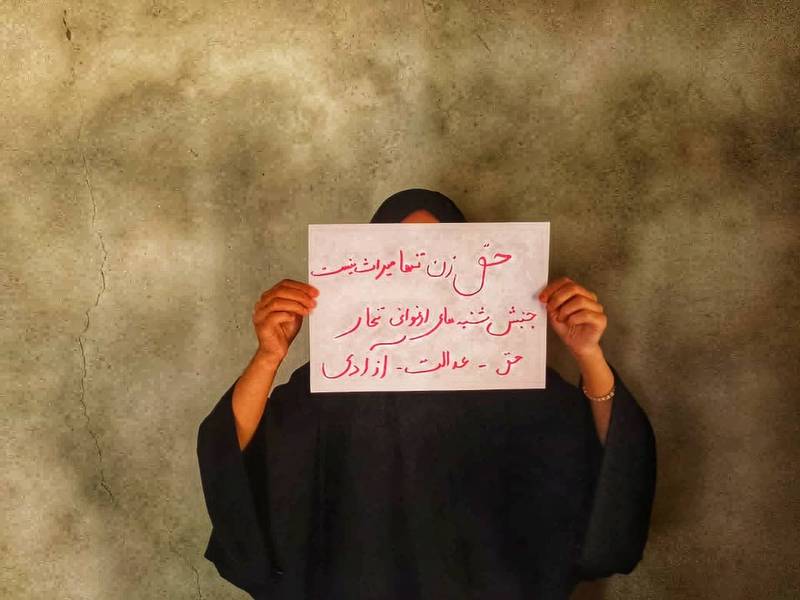 حقّ زن تنها میراث نیست
جنبش شنبه های ارغوانی تخار
حق - عدالت - آزادی